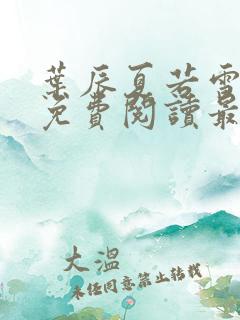 葉辰夏若雪
免費閱讀最
大溫
未經同意禁止转載